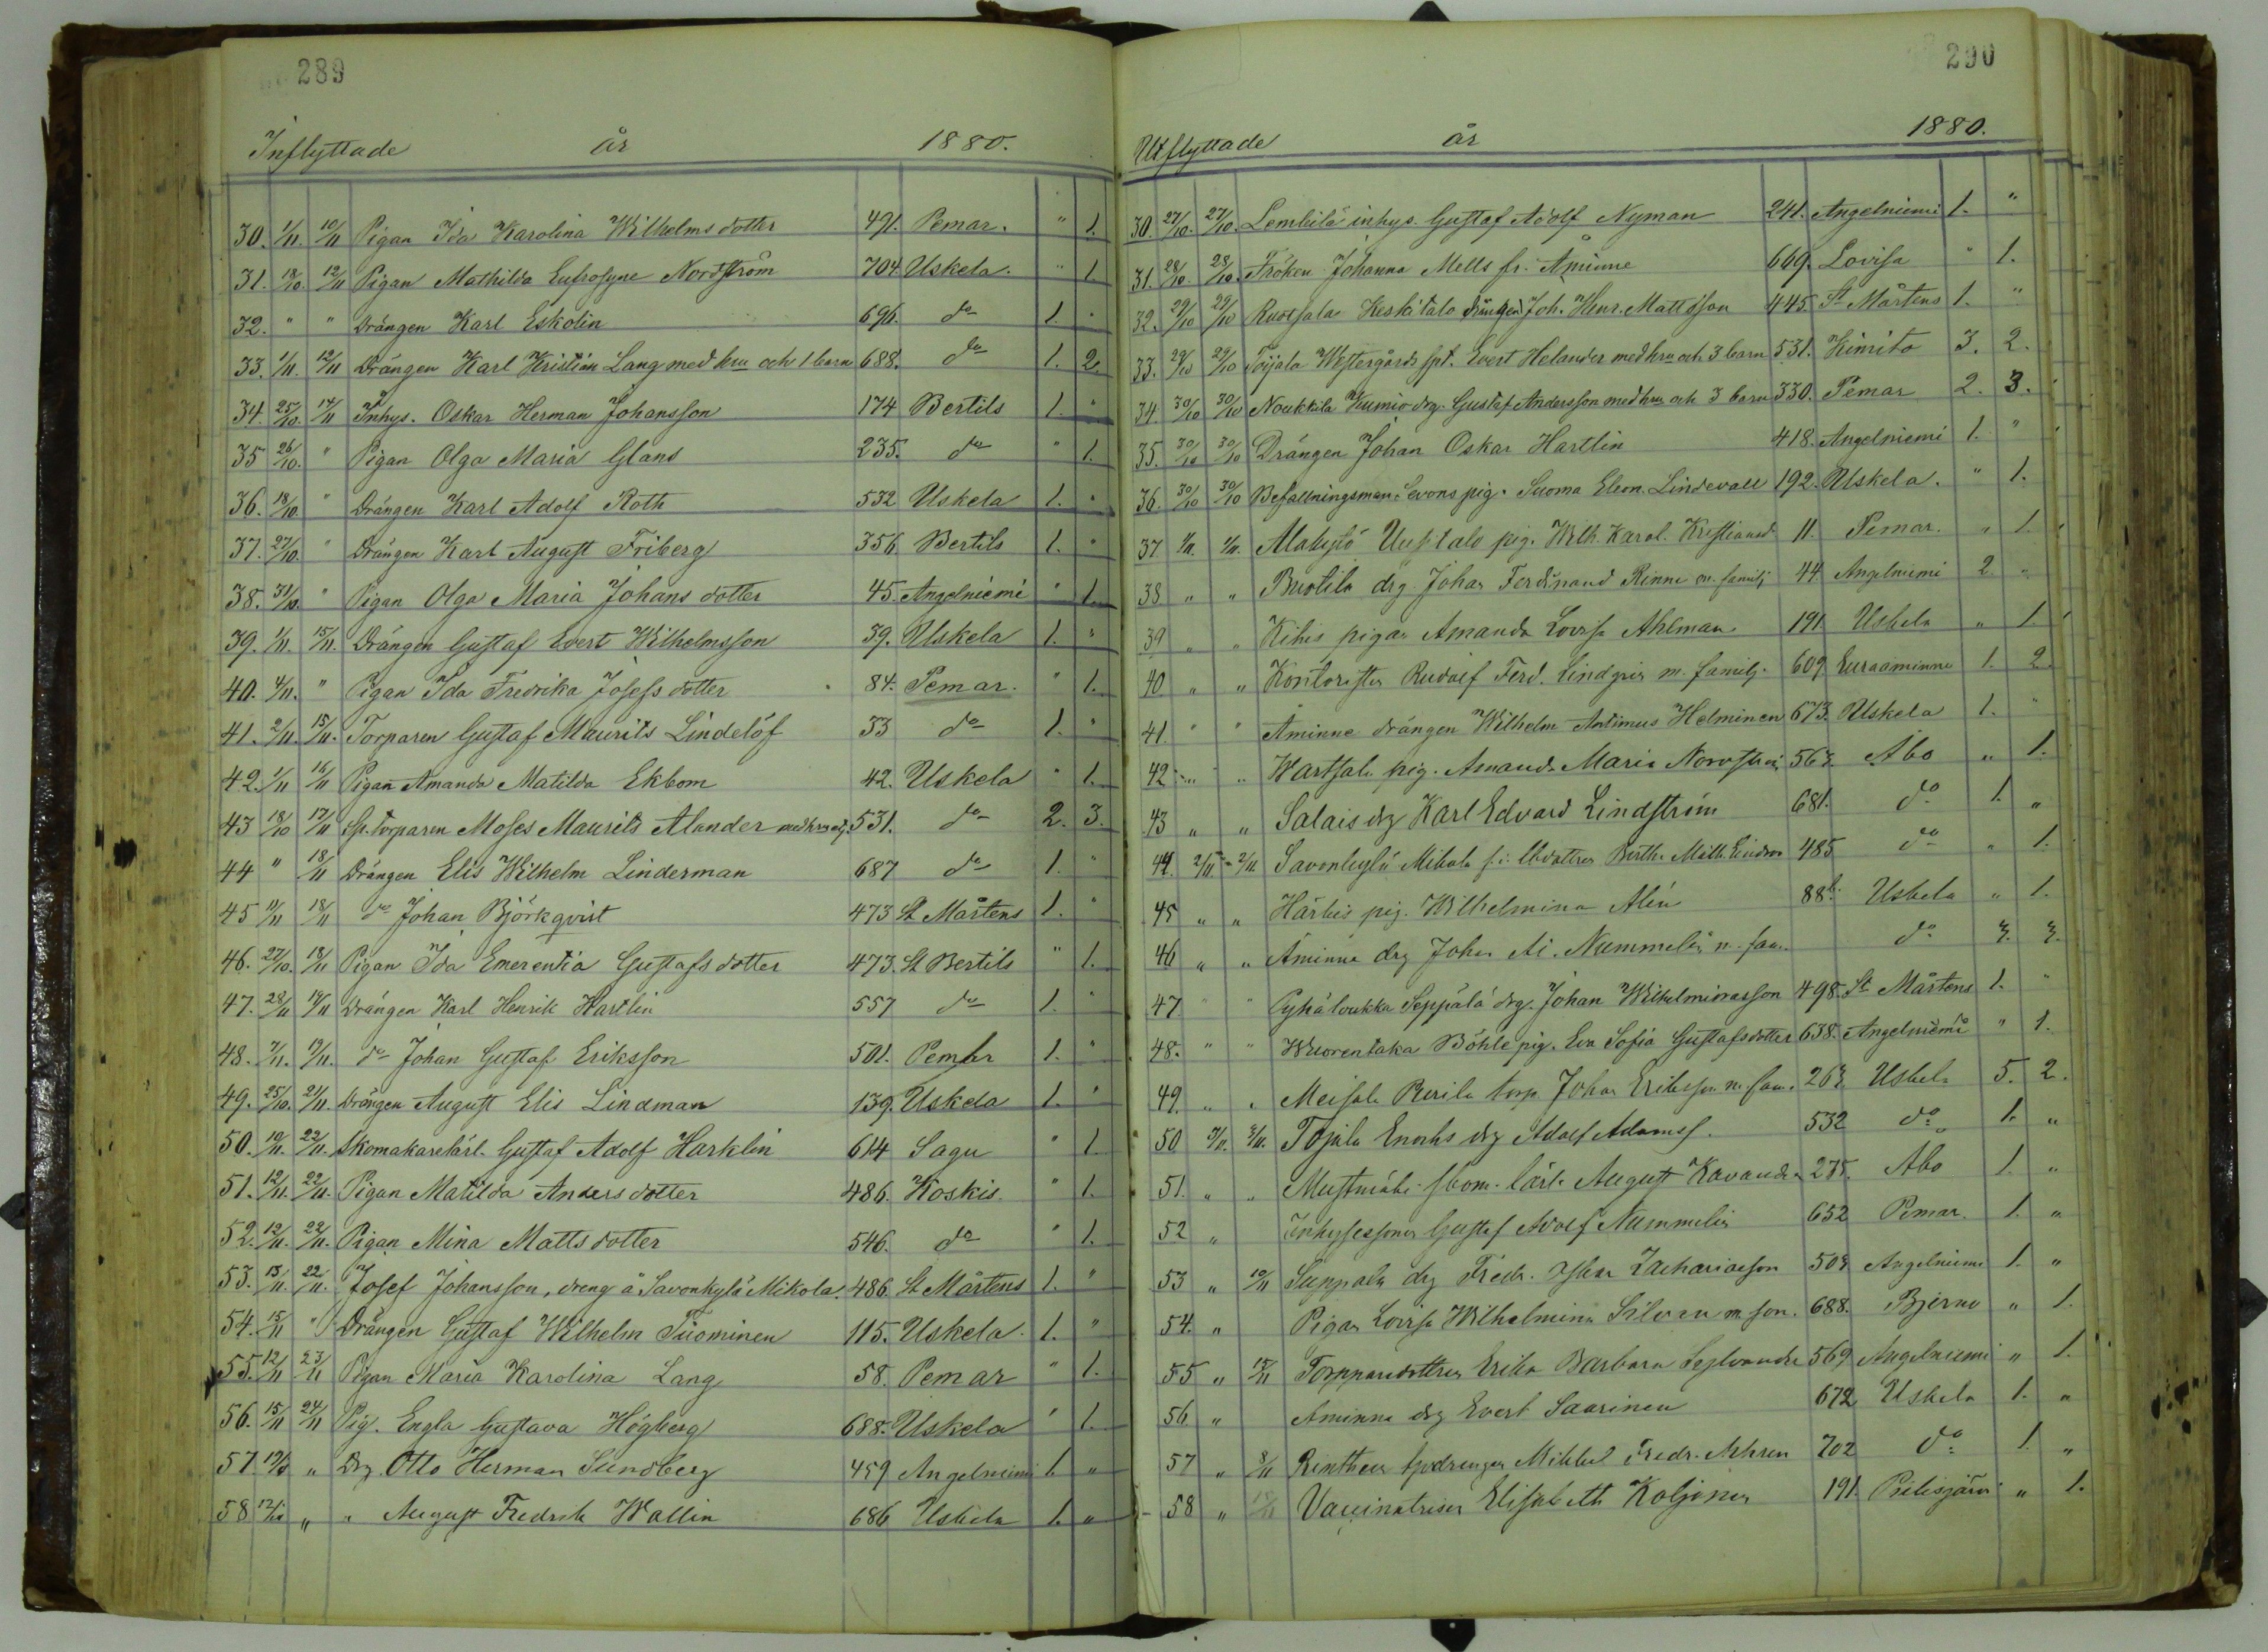 289
Inflyttade år 1880.
30. 1/11. 10/11 Pigan Ida Karolina Wilhelmsdotter 491. Pemar. " 1.
31. 18/10. 12/11 Pigan Mathilda Eufrosyne Nordström 704. Uskela. " 1.
32. " " Drängen Karl Eskolin 696. do 1. "
33. 1/11. 12/11 Drängen Karl Kristian Lang med hru och 1 barn 688. do 1. 2.
34. 25/10. 14/11 Inhys. Oskar Herman Johansson 174 Bertils 1. "
35 26/10. " Pigan Olga Maria Glans 235. do " 1.
36. 18/10. " Drängen Karl Adolf Roth 532 Uskela 1. "
37. 27/10. " Drängen Karl August Friberg 356. Bertils 1. "
38. 31/10. " Pigan Olga Maria Johansdotter 45. Angelniemi " 1.
39. 1/11. 15/11. Drängen Gustaf Evert Wilhelmsson 39. Uskela 1. "
40. 4/11. " Pigan Ida Fredrika Josefsdotter 84. Pemar. " 1.
41. 2/11. 15/11. Torparen Gustaf Maurits Lindelöf 33 do 1. "
42. 1/11 16/11 Pigan Amanda Matilda Ekbom 42. Uskela " 1.
43 18/10 17/11 Sp. torparen Moses Maurits Alander med hru 531. do 2. 3.
44 " 18/11 Drängen Elis Wilhelm Linderman 687 do 1. "
45 11/11 18/11 do Johan Björkqvist 473 St Mårtens 1. "
46. 27/10. 18/11 Pigan Ida Emerentia Gustafsdotter 473. St Bertils " 1.
47. 28/11 19/11 Drängen Karl Henrik Hartlin 557 do 1. "
48. 7/11. 19/11. do Johan Gustaf Eriksson 501. Pemar 1. "
49. 25/10. 21/11. Drängen August Elis Lindman 139. Uskela 1. "
50. 10/11. 22/11. Skomakarelärl. Gustaf Adolf Harklin 614 Sagu " 1.
51. 12/11. 22/11. Pigan Matilda Andersdotter 486. Koskis. " 1.
52. 12/11. 22/11. Pigan Mina Mattsdotter 546. do " 1.
53. 13/11. 22/11. Josef Johansson, dreng å Savonkylä Mikola. 486. St Mårtens 1. "
54. 15/11 " Drängen Gustaf Wilhelm Tuominen 115. Uskela. 1. "
55. 12/11 23/11 Pigan Maria Karolina Lang 58. Pemar " 1.
56. 15/11 24/11 Pig. Engla Gustava Högberg 688. Uskela " 1.
57. " Drg. Otto Herman Sundberg 459 Angelniemi 1. "
58 12/10 " " August Fredrik Wallin 686 Uskela 1. "
290
Utflyttade år 1880.
30. 27/10. 27/10. Lembilä inhys. Gustaf Adolf Nyman 241. Angelniemi 1. "
31. 28/10. 28/10. Fröken Johanna Mells fr. Åminne 669. Lovisa " 1.
32. 29/10 29/10 Ruotsala Keskitalo drängen Joh. Henr. Mattsson 445. St Mårtens 1. "
33. 29/10 29/10 Toijala Westergårds spt. Evert Helander med hru och 3 barn 531. Kimito 3. 2.
34. 30/10 30/10 Noukkila Kumio drg. Gustaf Andersson med hru och 3 barn 330. Pemar 2. 3.
35. 30/10 30/10 Drängen Johan Oskar Hartlin 418. Angelniemi 1. "
36. 30/10 30/10 Befallningsman Levons pig. Suoma Eleon. Lindevall 192. Uskela. " 1.
37 1/11. 1/11. Alakylö Uusitalo pig. Wilh. Karol. Kristiansd. 11. Pemar. " 1.
38 " " Buotila drg Johan Ferdinand Rinne m. familj 44 Angelniemi 2 "
39 " " Kihis pigan Amanda Lovisa Ahlman 191 Uskela " 1.
40 " " Kontoristen Rudolf Ferd. Lindgren m. familj. 609. Euraåminne 1. 2.
41. " " Åminne drängen Wilhelm Antimus Helminen 673. Uskela 1. "
42 " " Wartsala pig. Amanda Maria Nordström 563. Åbo " 1.
43 " " Salais drg Karl Edvard Lindström 681. do 1. "
44. 2/11 2/11. Savonkylä Mikola 485 do " 1.
45 " " Härkis pig. Wilhelmina Alén 88 Uskela " 1.
46 " " Åminne drg Johan Nummelin m. fam. do 3. 3.
47. " " Pyhäloukka Seppälä drg. Johan Wilhelminasson 498. St Mårtens 1. "
48. " " Wuorentaka Böhle pig. Eva Sofia Gustafsdotter 638. Angelniemi " 1.
49. " " Meisala torp. Johan Eriksson m. fam. 263 Uskela 5. 2.
50 Tojala Enochs drg Adolf Adamss. 532 do 1. "
51. " " Mustmäki skom. lärl. August Kavander 275. Åbo 1. "
52 " Inhysessonen Gustaf Adolf Nummelin 652 Pemar. 1. "
53 " 10/11 Suppala drg Fredr. Oskar Zachariasson 503 Angelniemi 1. "
54. " Pigan Lovisa Wilhelmina Silvan m. son. 688. Bjerno " 1.
55 " 15/11 Torpparedottren Erika Barbara Sylvander 569 Angelniemi " 1.
56 " Åminne drg Evert Saarinen 672 Uskela 1. "
57 " 8/11 Rintheer Mikkel Fredr. 702 do 1. "
58 " Vaccinatrisen Elisabeth Koljonen 191. Pielisjärvi " 1.